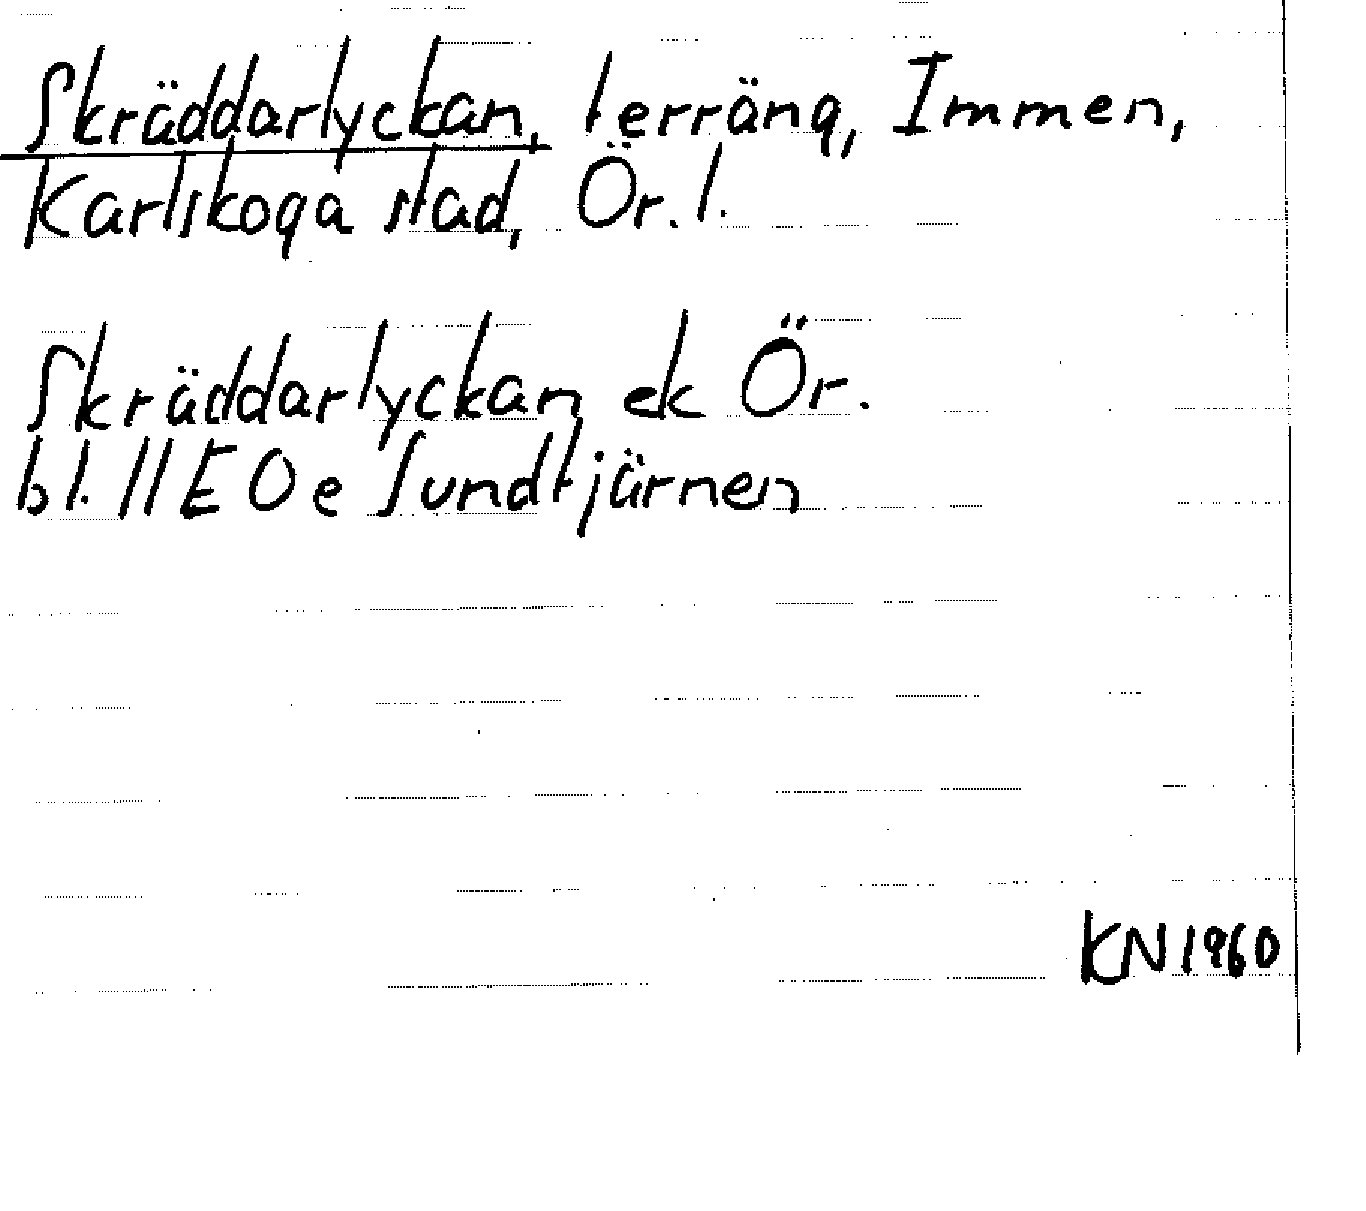 Skräddarlyckan, terräng, Immen,
Karlskoga stad, Ör. l.
Skräddarlyckan ek Ör.
bl. 11E 0e Sundtjärnen
KN1960